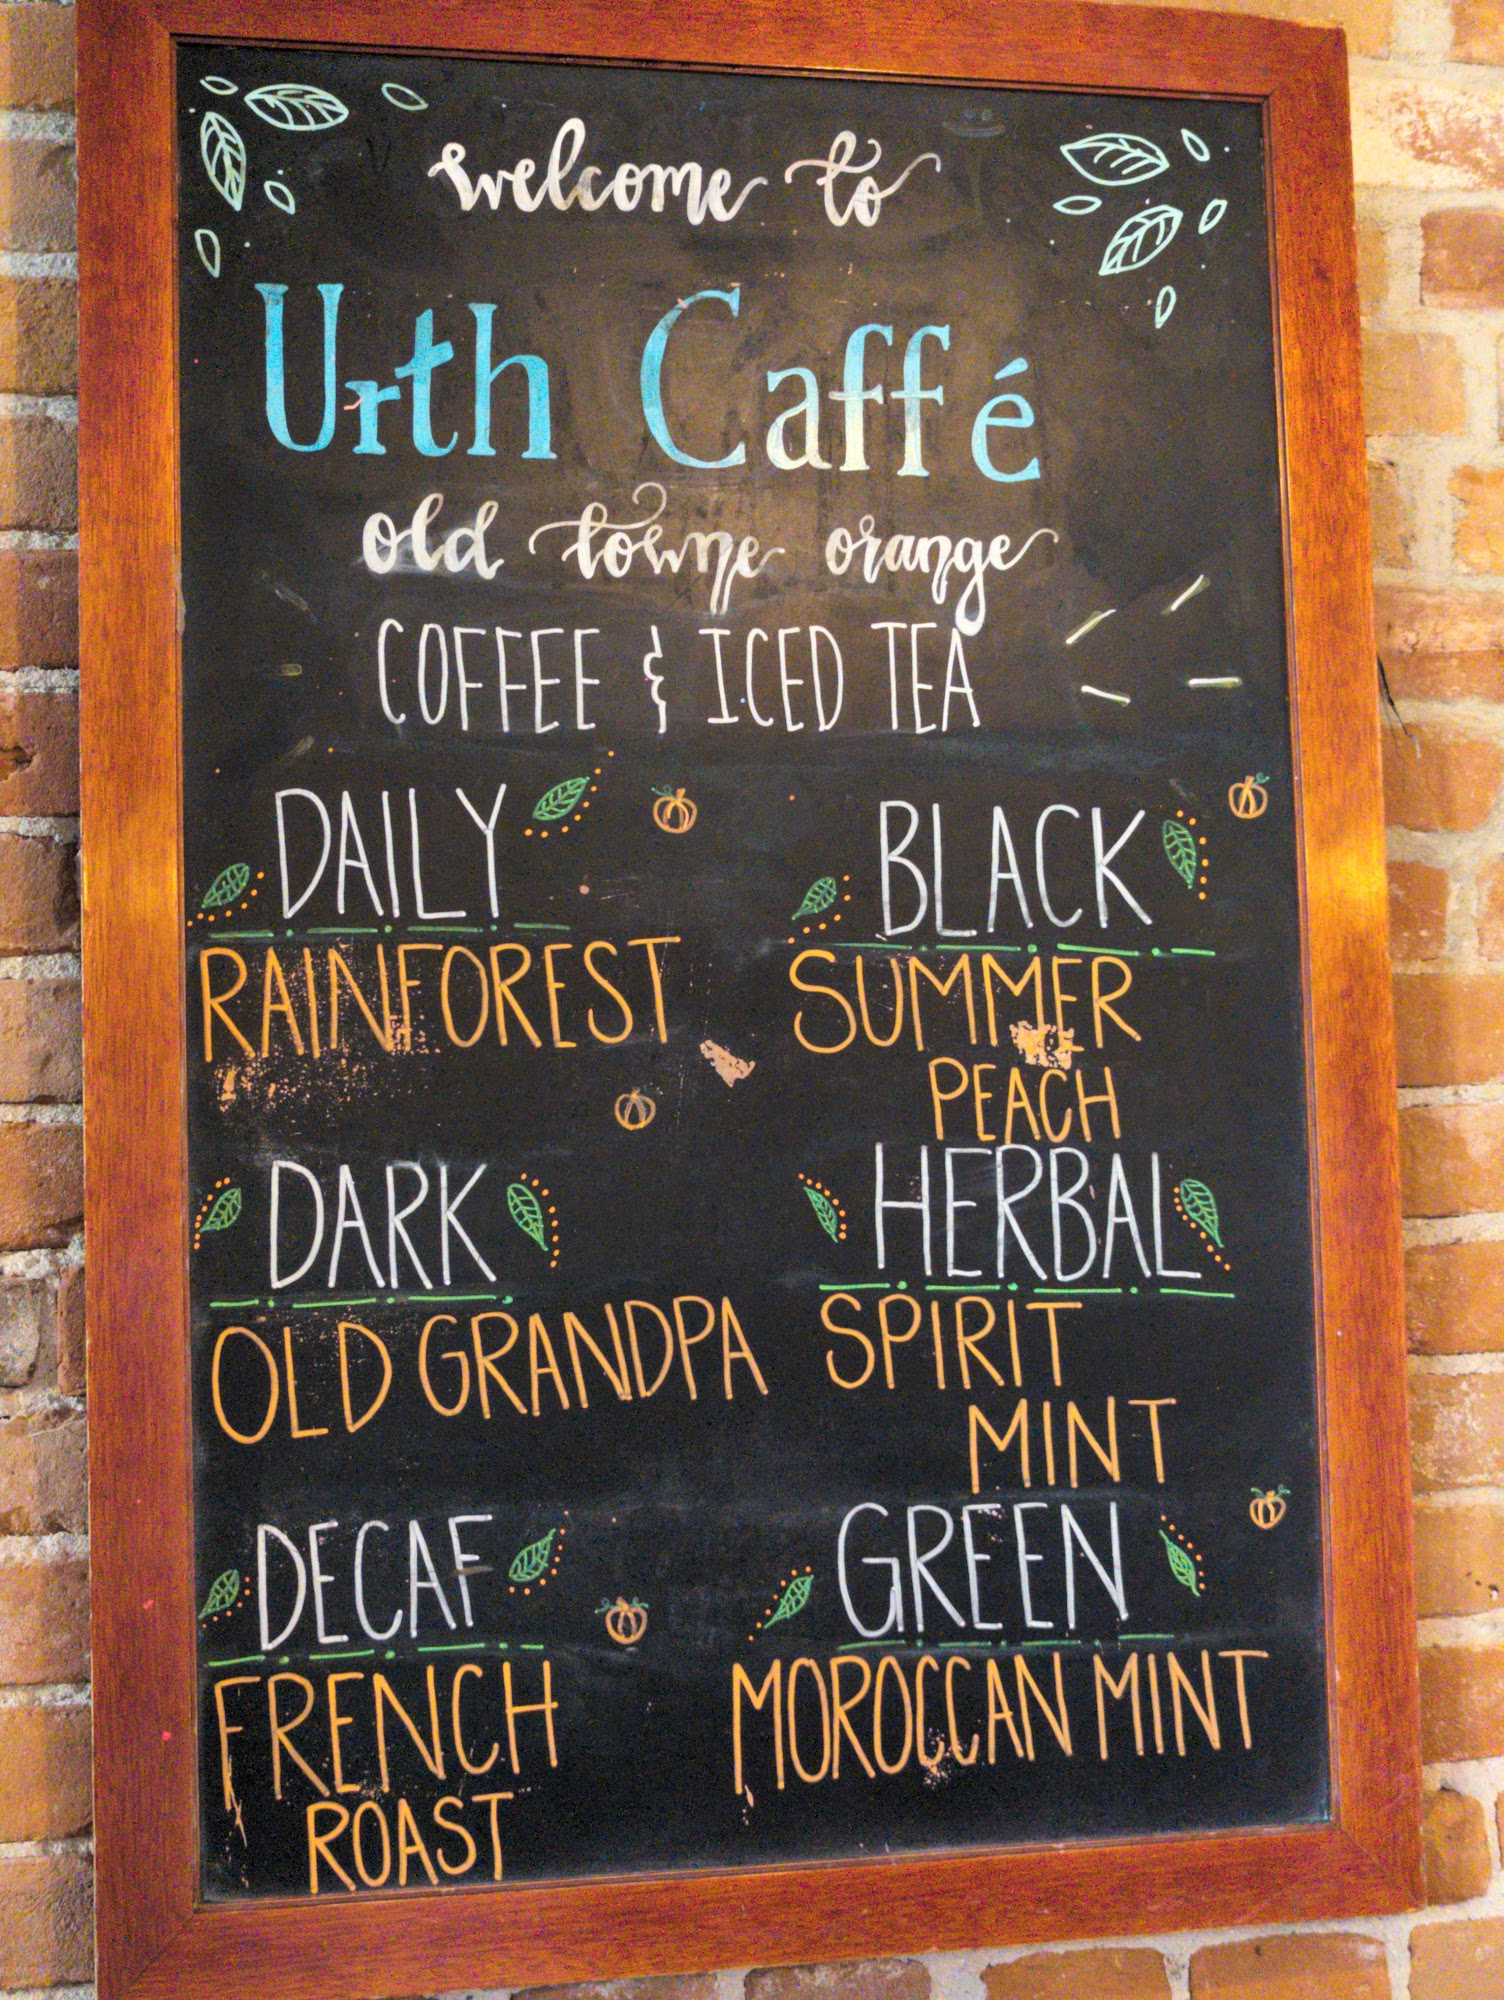 welcome to
Urth Caffé
old towne orange
COFFEE & ICED TEA
DAILY
RAINFOREST
DARK
OLD GRANDPA
DECAF
FRENCH
ROAST
BLACK
SUMMER
PEACH
HERBAL
SPIRIT
MINT
GREEN
MOROCCAN MINT